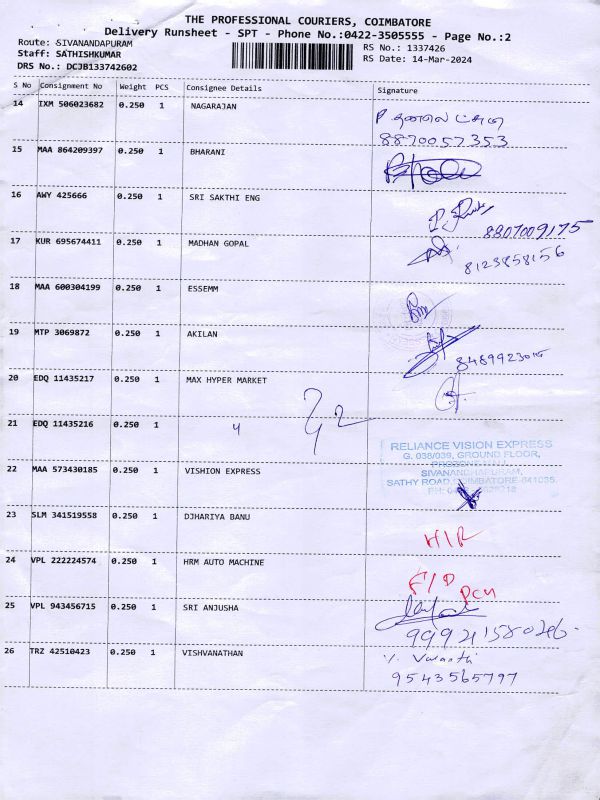 THE PROFESSIONAL COURIERS, COIMBATORE
Delivery Runsheet - SPT - Phone No.:0422-3505555 - Page No.:2
Route: SIVANANDAPURAM RS No.: 1337426
Staff: SATHISHKUMAR RS Date: 14-Mar-2024
DRS No.: DCJB133742602
S No Consignment No Weight PCS Consignee Details Signature
14 IXM 506023682 0.250 1 NAGARAJAN
8870057353
15 MAA 864209397 0.250 1 BHARANI
16 AWY 425666 0.250 1 SRI SAKTHI ENG
8807009175
17 KUR 695674411 0.250 1 MADHAN GOPAL
8123858156
18 MAA 600304199 0.250 1 ESSEMM
19 MTP 3069872 0.250 1 AKILAN
20 EDQ 11435217 0.250 1 MAX HYPER MARKET
21 EDQ 11435216 0.250 1 4
RELIANCE VISION EXPRESS
G. 038/039, GROUND FLOOR,
SIVANANDHAPURAM,
SATHY ROAD, COIMBATORE-641035.
22 MAA 573430185 0.250 1 VISHION EXPRESS
23 SLM 341519558 0.250 1 DJHARIYA BANU
24 VPL 222224574 0.250 1 HRM AUTO MACHINE
25 VPL 943456715 0.250 1 SRI ANJUSHA
26 TRZ 42510423 0.250 1 VISHVANATHAN
9543565797